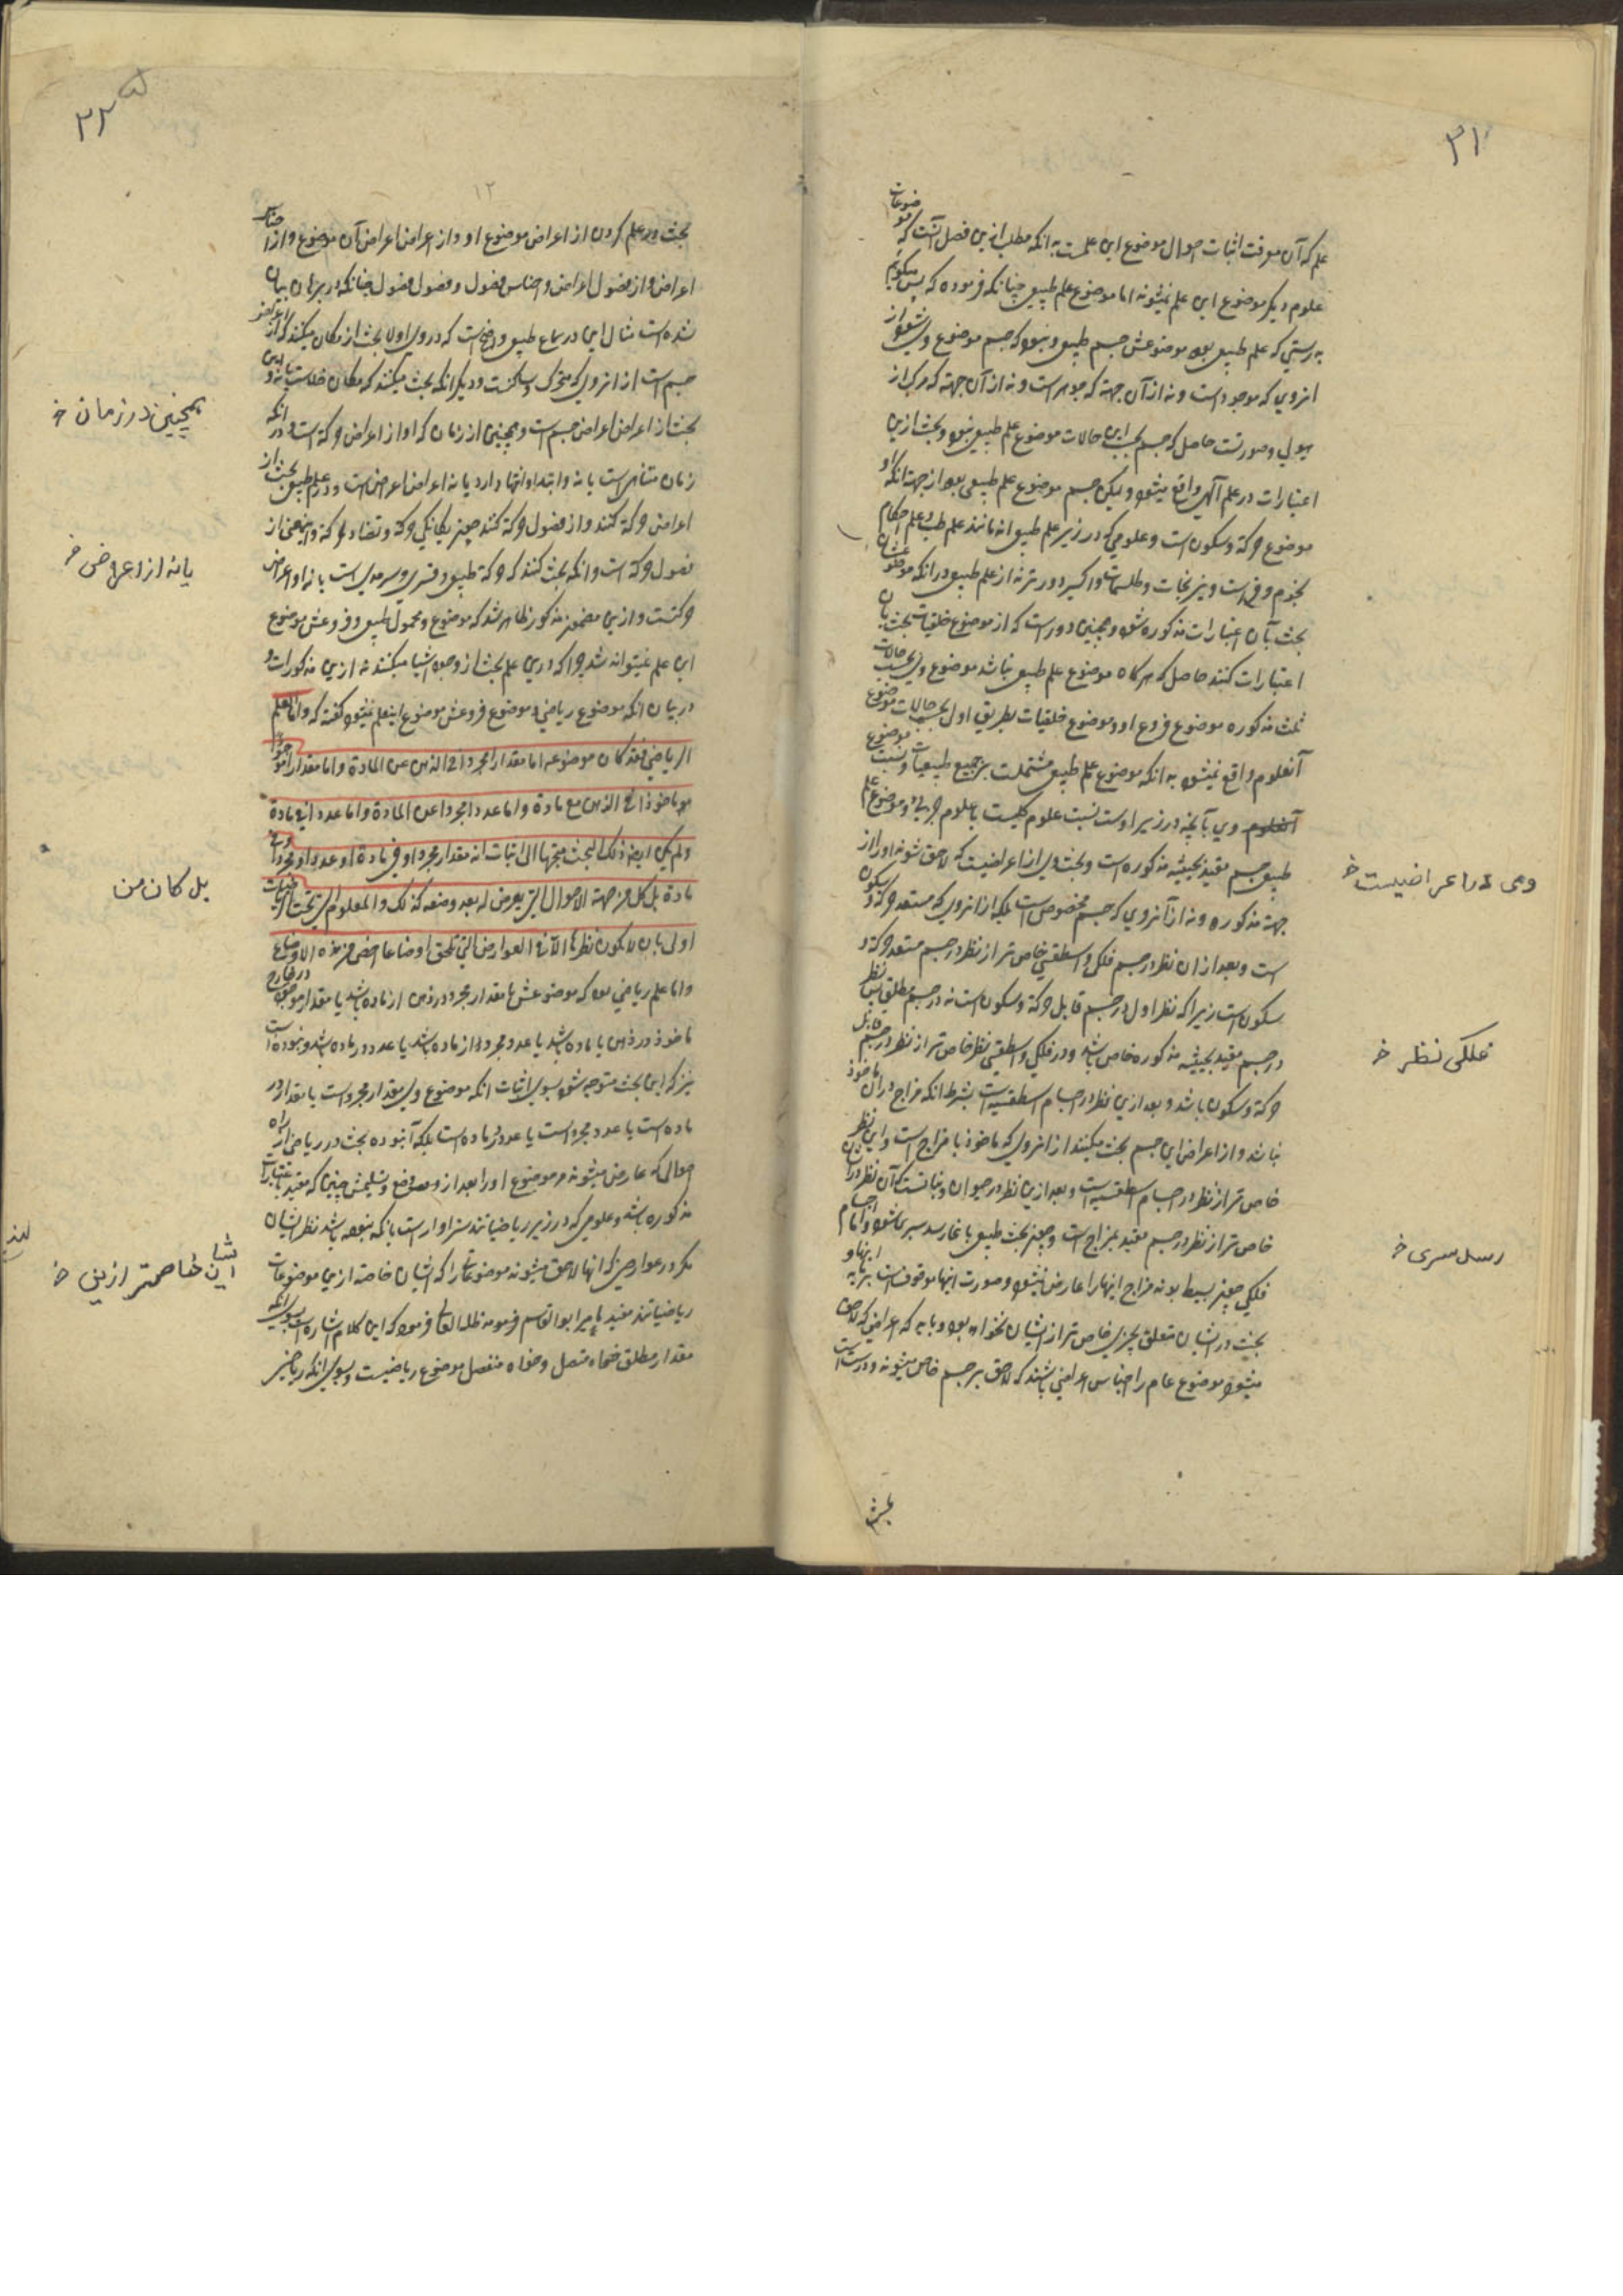 ۳۱
علم که آن معرفت اثبات احوال موضوع این علمست به انکه مطلب ازین فصل آنست که موضوعات
علوم دیگر موضوع این علم نمیشوند اما موضوع علم طبیعی چنانکه فرموده که پس میگویم
بدرستی که علم طبیعی بود موضوعش جسم طبیعی و نبود که جسم موضوع وی شود از
انروی که موجود است و نه از آن جهته که جوهر است و نه از آن جهته که مرکب از
هیولی و صورتست حاصل که جسم بحسب این حالات موضوع علم طبیعی نبود و بحث ازین
اعتبارات در علم آلهی واقع میشود و لیکن جسم موضوع علم طبیعی بود از جهته انکه او
موضوع حرکة و سکون است و علومی که در زیر علم طبیعی اند مانند علم طب و علم احکام
نجوم و است و نیرنجات و طلسمات و اکسیر دورترند از علم طبیعی در انکه موضوعشان
بحث بآن اعتبارات مذکوره شود و همچنین دور است که از موضوع خلقیات بحث بآن
اعتبارات کنند حاصل که هر کاه موضوع علم طبیعی نباشد موضوع وی بحسب حالات
ثلث مذکوره موضوع فروع او و موضوع خلقیات بطریق اول بحسب حالات موضوع
آنعلوم واقع نمیشود به انکه موضوع علم طبیعی مشتملست بر جمیع طبیعیات و نسبت موضوع
وی بآنچه در زیر اوست نسبت علوم کلیست با علوم جزئی و موضوع علم
طبیعی جسم مقید بحیثیه مذکوره است و بحث وی از اعراضیست که لاحق شوند او را از
جهته مذکوره و نه از آنروی که جسم مخصوص است بلکه از انروی که مستعد حرکة و سکون
است و بعد از ان نظر در جسم فلکی و اسطقسی خاص تر از نظر در جسم مستعد حرکة و
سکون است زیرا که نظر اول در جسم قابل حرکة و سکون است نه در جسم مطلق پس نظر
در جسم مقید بحیثیه مذکوره خاص باشد و در فلکی و اسطقسی نظر خاص تر از نظر در جسم قابل
حرکة و سکون باشد و بعد ازین نظر در اجسام اسطقسیه است بشرط انکه مزاج در آن ماخوذ
نباشد و از اعراض این جسم بحث میکنند از انروی که ماخوذ با مزاج است و این نظر
خاص تر از نظر در اجسام اسطقسیه است و بعد ازین نظر در حیوان و نباتست که آن نظر در آن
خاص تر از نظر در جسم مقید بمزاج است و چون بحث طبیعی باینجا رسد سپری شود و اما اجسام
فلکی چون بسیط بودند مزاج اینها را عارض نمیشود و صورت اینها موقوف است اینها و
بحث در ایشان متعلق بچیزی خاص تر از ایشان نخواهد بود و باید که اعراضی که لاحق
میشود موضوع عام را اجناس اعراضی باشند که لاحق بر جسم خاص میشوند و درست است
بحث
فلکی نظر خ
۳۲
۱۲
بحث در علم کردن از اعراض موضوع او و از اعراض اعراض آن موضوع و از اجناس
اعراض و از فصول اعراض و اجناس فصول و فصول فصول چنانکه در برهان بیان
شده است مثال این در سماع طبیعی واضح است که در وی اولا بحث از مکان میکنند که از اعراض
جسم است از انروی که متحرک و ساکنست و دیگر انکه بحث میکنند که مکان خلاست یا نه و این
بحث از اعراض اعراض جسم است و همچنین از زمان که او از اعراض حرکة است و در انکه
زمان متناهی است یا نه و ابتدا و انتها دارد یا نه اعراض اعراض است و در علم طبیعی بحث از
اعراض حرکة کنند و از فصول حرکة کنند چون یکانکی حرکة و تضاد حرکة و این معنی از
فصول حرکة است و انکه بحث کنند که حرکة طبیعی و قسری و سرمدی است یا نه او اعراض
حرکتست و ازین مضمون مذکور ظاهر شد که موضوع و محمول طبیعی و فروعش موضوع
این علم نمیتواند شد چرا که درین علم بحث از وجود اشیا میکنند نه ازین مذکورات و
در بیان انکه موضوع ریاضی و موضوع فروعش موضوع اینعلم نمیشود کفته که و اما العلم
الریاضی فقد کان موضوعه اما مقدارا مجردا فی الذهن عن المادة و اما مقدارا
ماخوذا فی الذهن مع مادة و اما عددا مجردا عن المادة و اما عددا فی مادة
و لم یکن ایضا ذلک البحث متجها الی اثبات انه مقدار مجرد او فی مادة او عدد مجرد او فی
مادة بل کل من جهة الاحوال التی یعرض له بعد وضعه کذلک و العلوم التی تحت الریاضیات
اولی بان لا یکون نظرها الا فی العوارض التی تلحق اوضاعا اخص من هذه الاوضاع
و اما علم ریاضی بود که موضوعش یا مقدار مجرد در ذهن از ماده باشد یا مقدار موجود در خارج
ماخوذ در ذهن با ماده باشد یا عدد مجرد از ماده باشد یا عدد در ماده باشد و نبوده است
نیز که این بحث متوجه شود بسوی اثبات انکه موضوع وی مقدار مجرد است یا مقدار در
ماده است یا عدد مجرد است یا عدد در ماده است بلکه آنبوده بحث در ریاضی از راه
احوالی که عارض میشوند مر موضوع او را بعد از وضع و تسلیمش چنین که مقید باعتبارات
مذکوره باشد و علومی که در زیر ریاضیاتند سزاوار است بانکه نبوده باشد نظر ایشان
مکر در عوارضی که انها لاحق میشوند موضوعاتی را که ایشان خاصه ازین موضوعات
ریاضیاتند مفید میر ابوالقاسم فرموده که این کلام اشاره است بسوی انکه
مقدار مطلق خواه متصل و خواه منفصل موضوع ریاضیست و بسوی انکه ریاضی
همچنین در زمان خ
یا نه از اعراض خ
بل کان من
ایشان خاصتر ازین خ